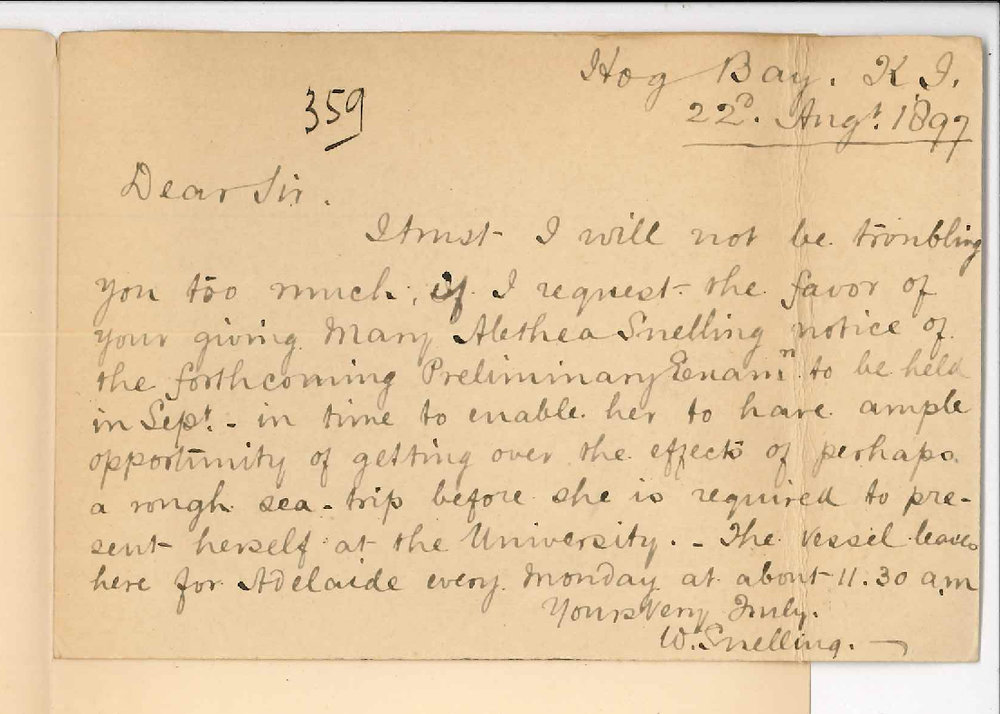 Hog Bay. K.I.
359
22D. Augt. 1897
Dear Sir.
I trust I will not be troubling
you too much, if I request the favor of
your giving Mary Alethea Snelling notice of
the forthcoming Preliminary Examn to be held
in Sept. - in time to enable her to have ample
opportunity of getting over the effects of perhaps
a rough sea-trip before she is required to pre-
sent herself at the University. - The vessel leaves
here for Adelaide every Monday at about 11.30 a.m
Yours Very Truly.
W. Snelling. —